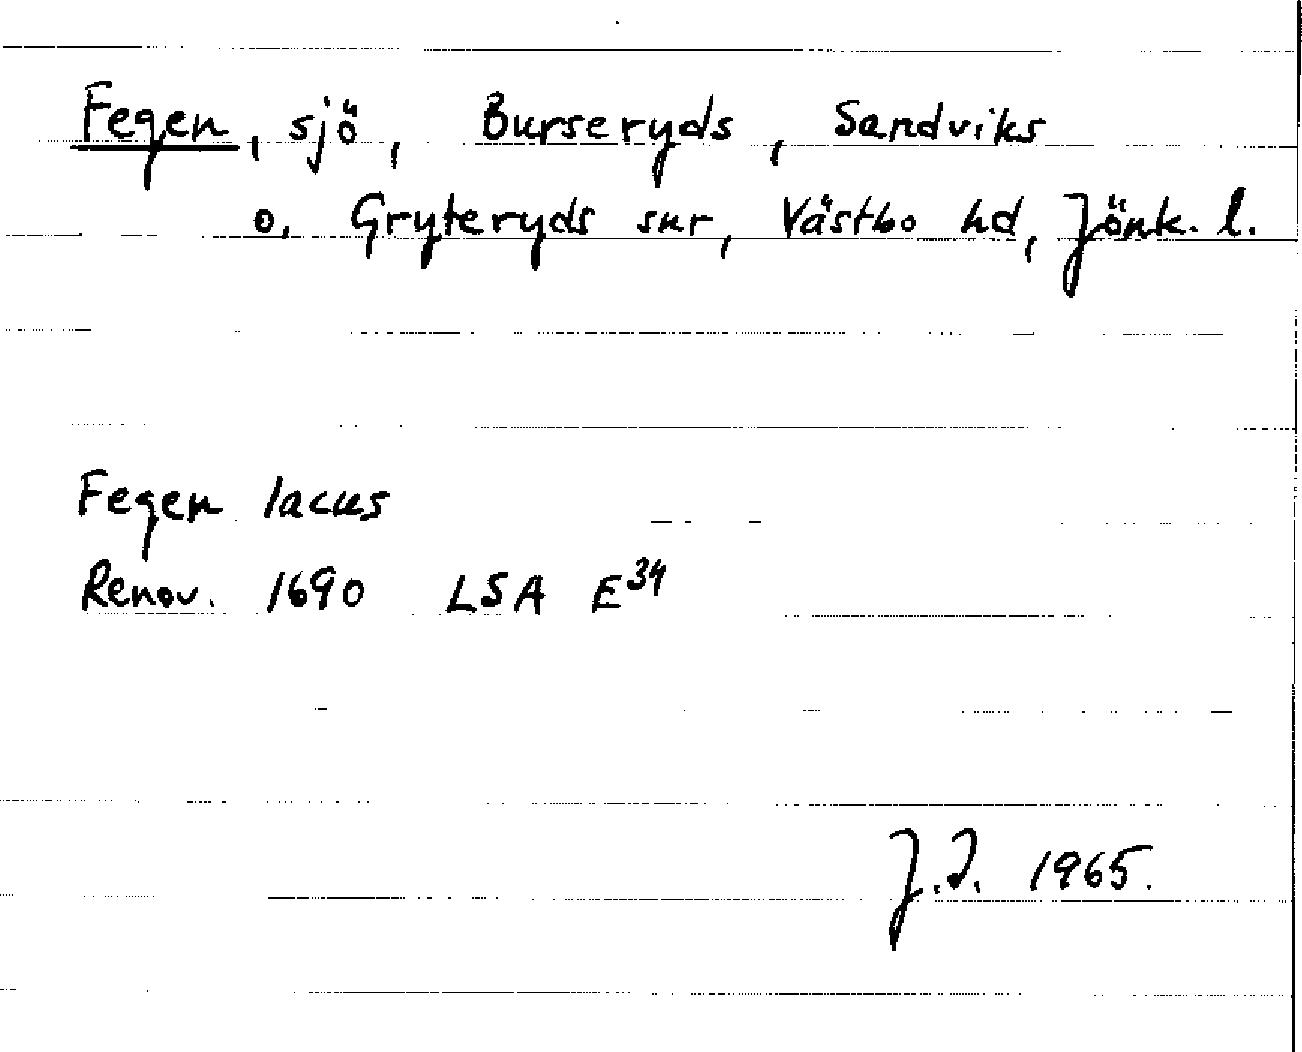 Fegen, sjö, Burseryds, Sandviks
o. Gryteryds snr, Västbo hd, Jönk. l.
Fegen lacus
Renov. 1690 LSA E³⁴
J.I. 1965.